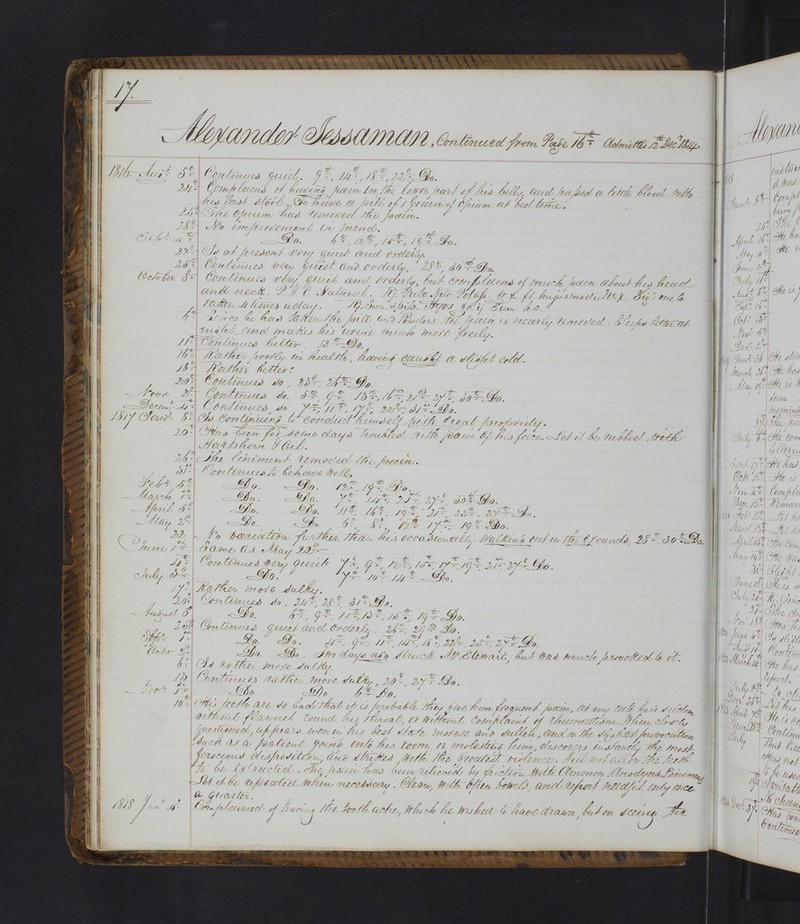 17.
Alexander Jessaman, Continued from Page 16th Admitted 12th Decr 1814.
1816 Augt 5th Continues quiet. 9th, 14th, 18th, 22d Do.
24th Complains of having pain in the lower part of his belly and passed a little blood with
his last stool. To have a pill of 1 Grain of Opium at bed time.
25th The opium has removed the pain.
28th No improvement in mind.
Sept 4th Do. 6th, 12th, 15th, 19th Do.
22d Is at present very quiet and orderly.
25th Continues very quiet and orderly. 28th, 30th Do.
October 3d Continues very quiet and orderly, but complains of much pain about his head
and neck. P. & U. Natural.
4 times a day.
6th Since he has taken the pill and Powders the pain is nearly removed. Sleeps better at
night, and makes his urine much more freely.
11th Continues better. 13th Do.
16th Rather poorly in health, having caught a slight cold.
18th Rather better.
20th Continues so. 23d, 26th Do.
Novr 2d Continues so. 5th, 9th, 13th, 16th, 21st, 27th, 30th Do.
Decemr 4th Continues so 7th, 11th, 17th, 22d, 31st Do.
1817 Janr 8th Is continuing to conduct himself with great propriety.
20th Has been for some days troubled with pain of his face. Let it be rubbed with
Hartshorn & Oil.
26th The liniment removed the pain.
31st Continues to behave well.
Feby 5th Do. Do. 12th, 19th, Do.
March 1st Do. Do. 7th, 14th, 21st, 27th, 30th Do.
April 5th Do. Do. 11th, 16th, 19th, 21st, 25th, 27th Do.
May 2d Do. Do. 6th, 8th, 12th, 17th, 19th Do.
22 No variation further than his occasionally walking out in the Grounds, 28th, 30th Do.
June 1st Same as May 22d
4th Continues very quiet 7th, 9th, 12th, 15th, 17th, 19th, 21st, 27th Do.
July 3d Do. 7th, 10th, 14th Do.
17th Rather more sulky.
20th Continues so, 24th, 28th, 31st Do.
August 5th Do. 6th, 9th, 11th, 13th, 16th, 19th Do.
22d Continues quiet and orderly. 26th, 29th Do.
Septr 1st Do. Do. 4th, 9th, 11th, 14th, 18th, 21st, 25th, 27th Do.
Octor 2d Do. Do. Two days ago struck Mr Stewart, but was much provoked to it.
6th Is rather more sulky.
13th Continues rather more sulky, 20th, 27th Do.
Novr 1st Do Do 6th Do.
10th His teeth are so bad that it is probable they give him frequent pain, at any rate he is seldom
without flannel round his throat, or without complaint of rheumatism. When closely
questioned, appears even in his best state morose and sullen, and on the slightest provocation
such as a patient going into his room, or molesting him, discovers instantly the most
ferocious disposition, and strikes with the greatest violence. Will not allow the teeth
to be extracted. The pain has been relieved by friction with Common Anodyne Liniment
Let it be repeated when necessary. Clean, with open bowels, and report needful only once
a quarter.
1818 Janr 4th Complained of having the tooth ache, which he wished to have drawn, but on seeing the